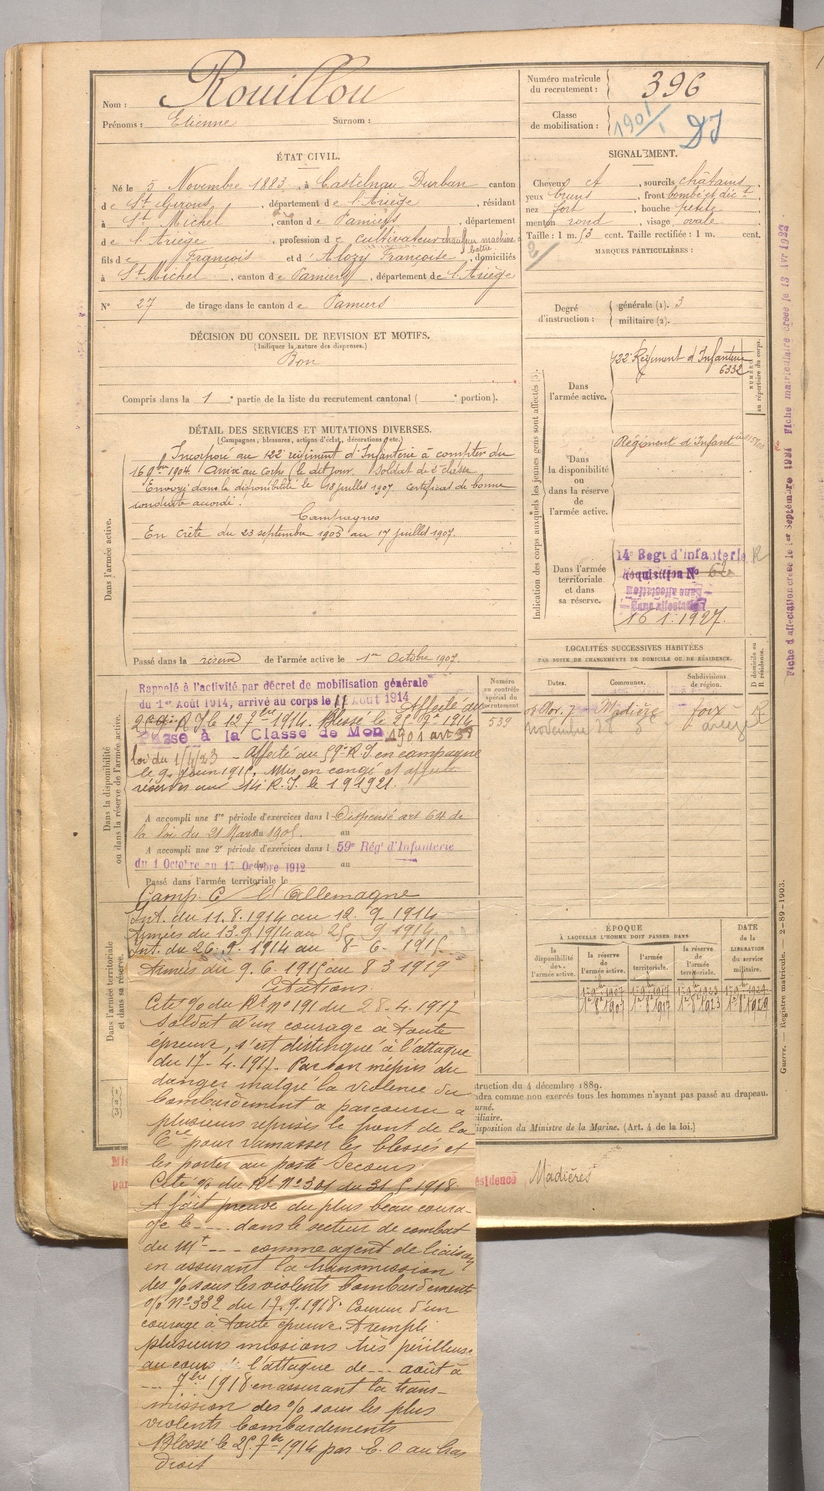 Nom : Rouillou
Prénoms : Etienne Surnom :
Numéro matricule du recrutement : 396
Classe de mobilisation : 1901/1 DJ
ÉTAT CIVIL.
Né le 5 Novembre 1883, à Castelnau Durban canton
de St Girons, département de l'Ariège, résidant
à St Michel, canton de Pamiers, département
de l'Ariège, profession de cultivateur chauffeur machine
fils de François et d'Alozy Françoise, domiciliés
à St Michel, canton de Pamiers, département de l'Ariège
N° 27 de tirage dans le canton de Pamiers
SIGNALEMENT.
Cheveux ct, sourcils châtains,
yeux bruns, front bombé et déct,
nez fort, bouche petite,
menton rond, visage ovale.
Taille : 1 m. 53 cent. Taille rectifiée : 1 m. cent.
MARQUES PARTICULIÈRES :
Degré d'instruction : générale (1). 3
militaire (2).
DÉCISION DU CONSEIL DE REVISION ET MOTIFS.
(Indiquez la nature des dispenses.)
Bon
Compris dans la 1e partie de la liste du recrutement cantonal ( e portion).
DÉTAIL DES SERVICES ET MUTATIONS DIVERSES.
(Campagnes; blessures, actions d'éclat, décorations, etc.)
Dans l'armée active.
Incorporé au 122e régiment d'Infanterie à compter du
16 9bre 1904. Arrivé au Corps le dit jour. Soldat de 2e classe
Envoyé dans la disponibilité le 18 juillet 1907. Certificat de bonne
conduite accordé.
Campagnes
En Crète du 23 septembre 1905 au 17 juillet 1907.
Passé dans la réserve de l'armée active le 1er Octobre 1907.
Indication des corps auxquels les jeunes gens sont affectés
NUMÉRO au répertoire du corps.
Dans l'armée active.
122e Régiment d'Infanterie
6332
Dans la disponibilité ou dans la réserve de l'armée active.
Régiment d'Infant
Dans l'armée territoriale et dans sa réserve.
14e Regt d'infanterie R
Sans affectation
16.1.1927.
Fiche d'affectation créée le 1er Septembre 1924 Fiche matriculaire créée le 13 Avr 1922
Dans la disponibilité ou dans la réserve de l'armée active.
Rappelé à l'activité par décret de mobilisation générale
du 1er Août 1914, arrivé au corps le 11 Août 1914 Affecté au
R.I. le 13 7bre 1914. Blessé le 25 9e 1914
Passé à la Classe de Mon 1901 art 58
loi du 1/4/23 - Affecté au 59e R.I en campagne
le 9 Juin 1915. Mis en congé et affecté
réserves au 14e R.I. le 1 9 1921.
A accompli une 1re période d'exercices dans l Dispensé art 64 de
la loi du 21 Mars 1905. au
A accompli une 2e période d'exercices dans l 59e Rég d'Infanterie
du 1 Octobre au 17 Octobre 1912 au
Passé dans l'armée territoriale le
Numéro au contrôle spécial du recrutement
539
LOCALITÉS SUCCESSIVES HABITÉES
PAR SUITE DE CHANGEMENTS DE DOMICILE OU DE RÉSIDENCE.
Dates. Communes. Subdivisions de région. D domicile ou R résidence.
Nov. 7 Madière Foix R
Novembre 28
Dans l'armée territoriale et dans sa réserve.
Camp. C/ l'Allemagne
Int. du 11.8.1914 au 12.9.1914
Armées du 13.9.1914 au 25.9.1914
Int. du 26.9.1914 au 8-6-1915
Armées du 9.6.1915 au 8 3 1919
Citations
Cité % du Rt n° 191 du 28.4.1917
Soldat d'un courage à toute
épreuve, s'est distingué à l'attaque
du 17-4.1917. Par son mépris du
danger malgré la violence du
bombardement a parcouru à
plusieurs reprises le front de la
Cie pour ramasser les blessés et
les porter au poste Secours
Cité % du Rt N° 301 du 31 5 1918
A fait preuve du plus beau coura-
ge le --- dans le secteur de combat
du Mt --- comme agent de liaison
en assurant la transmission
des % sous les violents bombardements
% N° 332 du 17.9.1918. Coureur d'un
courage à toute épreuve. A rempli
plusieurs missions très périlleuses
au cours de l'attaque de --- août à
--- 7bre 1918 en assurant la trans-
mission des % sous les plus
violents bombardements
Blessé le 25 7bre 1914 par E.O. au bras
droit
ÉPOQUE
À LAQUELLE L'HOMME DOIT PASSER DANS
la disponibilité de l'armée active. la réserve de l'armée active. l'armée territoriale. la réserve de l'armée territoriale.
DATE de la LIBÉRATION du service militaire.
1er 8bre 1907 1er 8bre 1917 1er 8bre 1923 1er 8bre 1929
struction du 4 décembre 1889.
ndra comme non exercés tous les hommes n'ayant pas passé au drapeau.
urné.
iliaire.
isposition du Ministre de la Marine. (Art. 4 de la loi.)
ésidence Madières
Guerre. — Registre matricule. 2-89-1903.